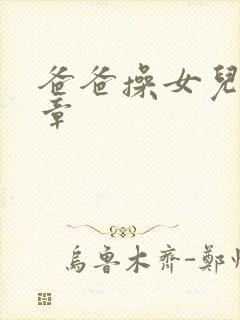 爸爸操女兒
章
烏魯木齊-鄭州